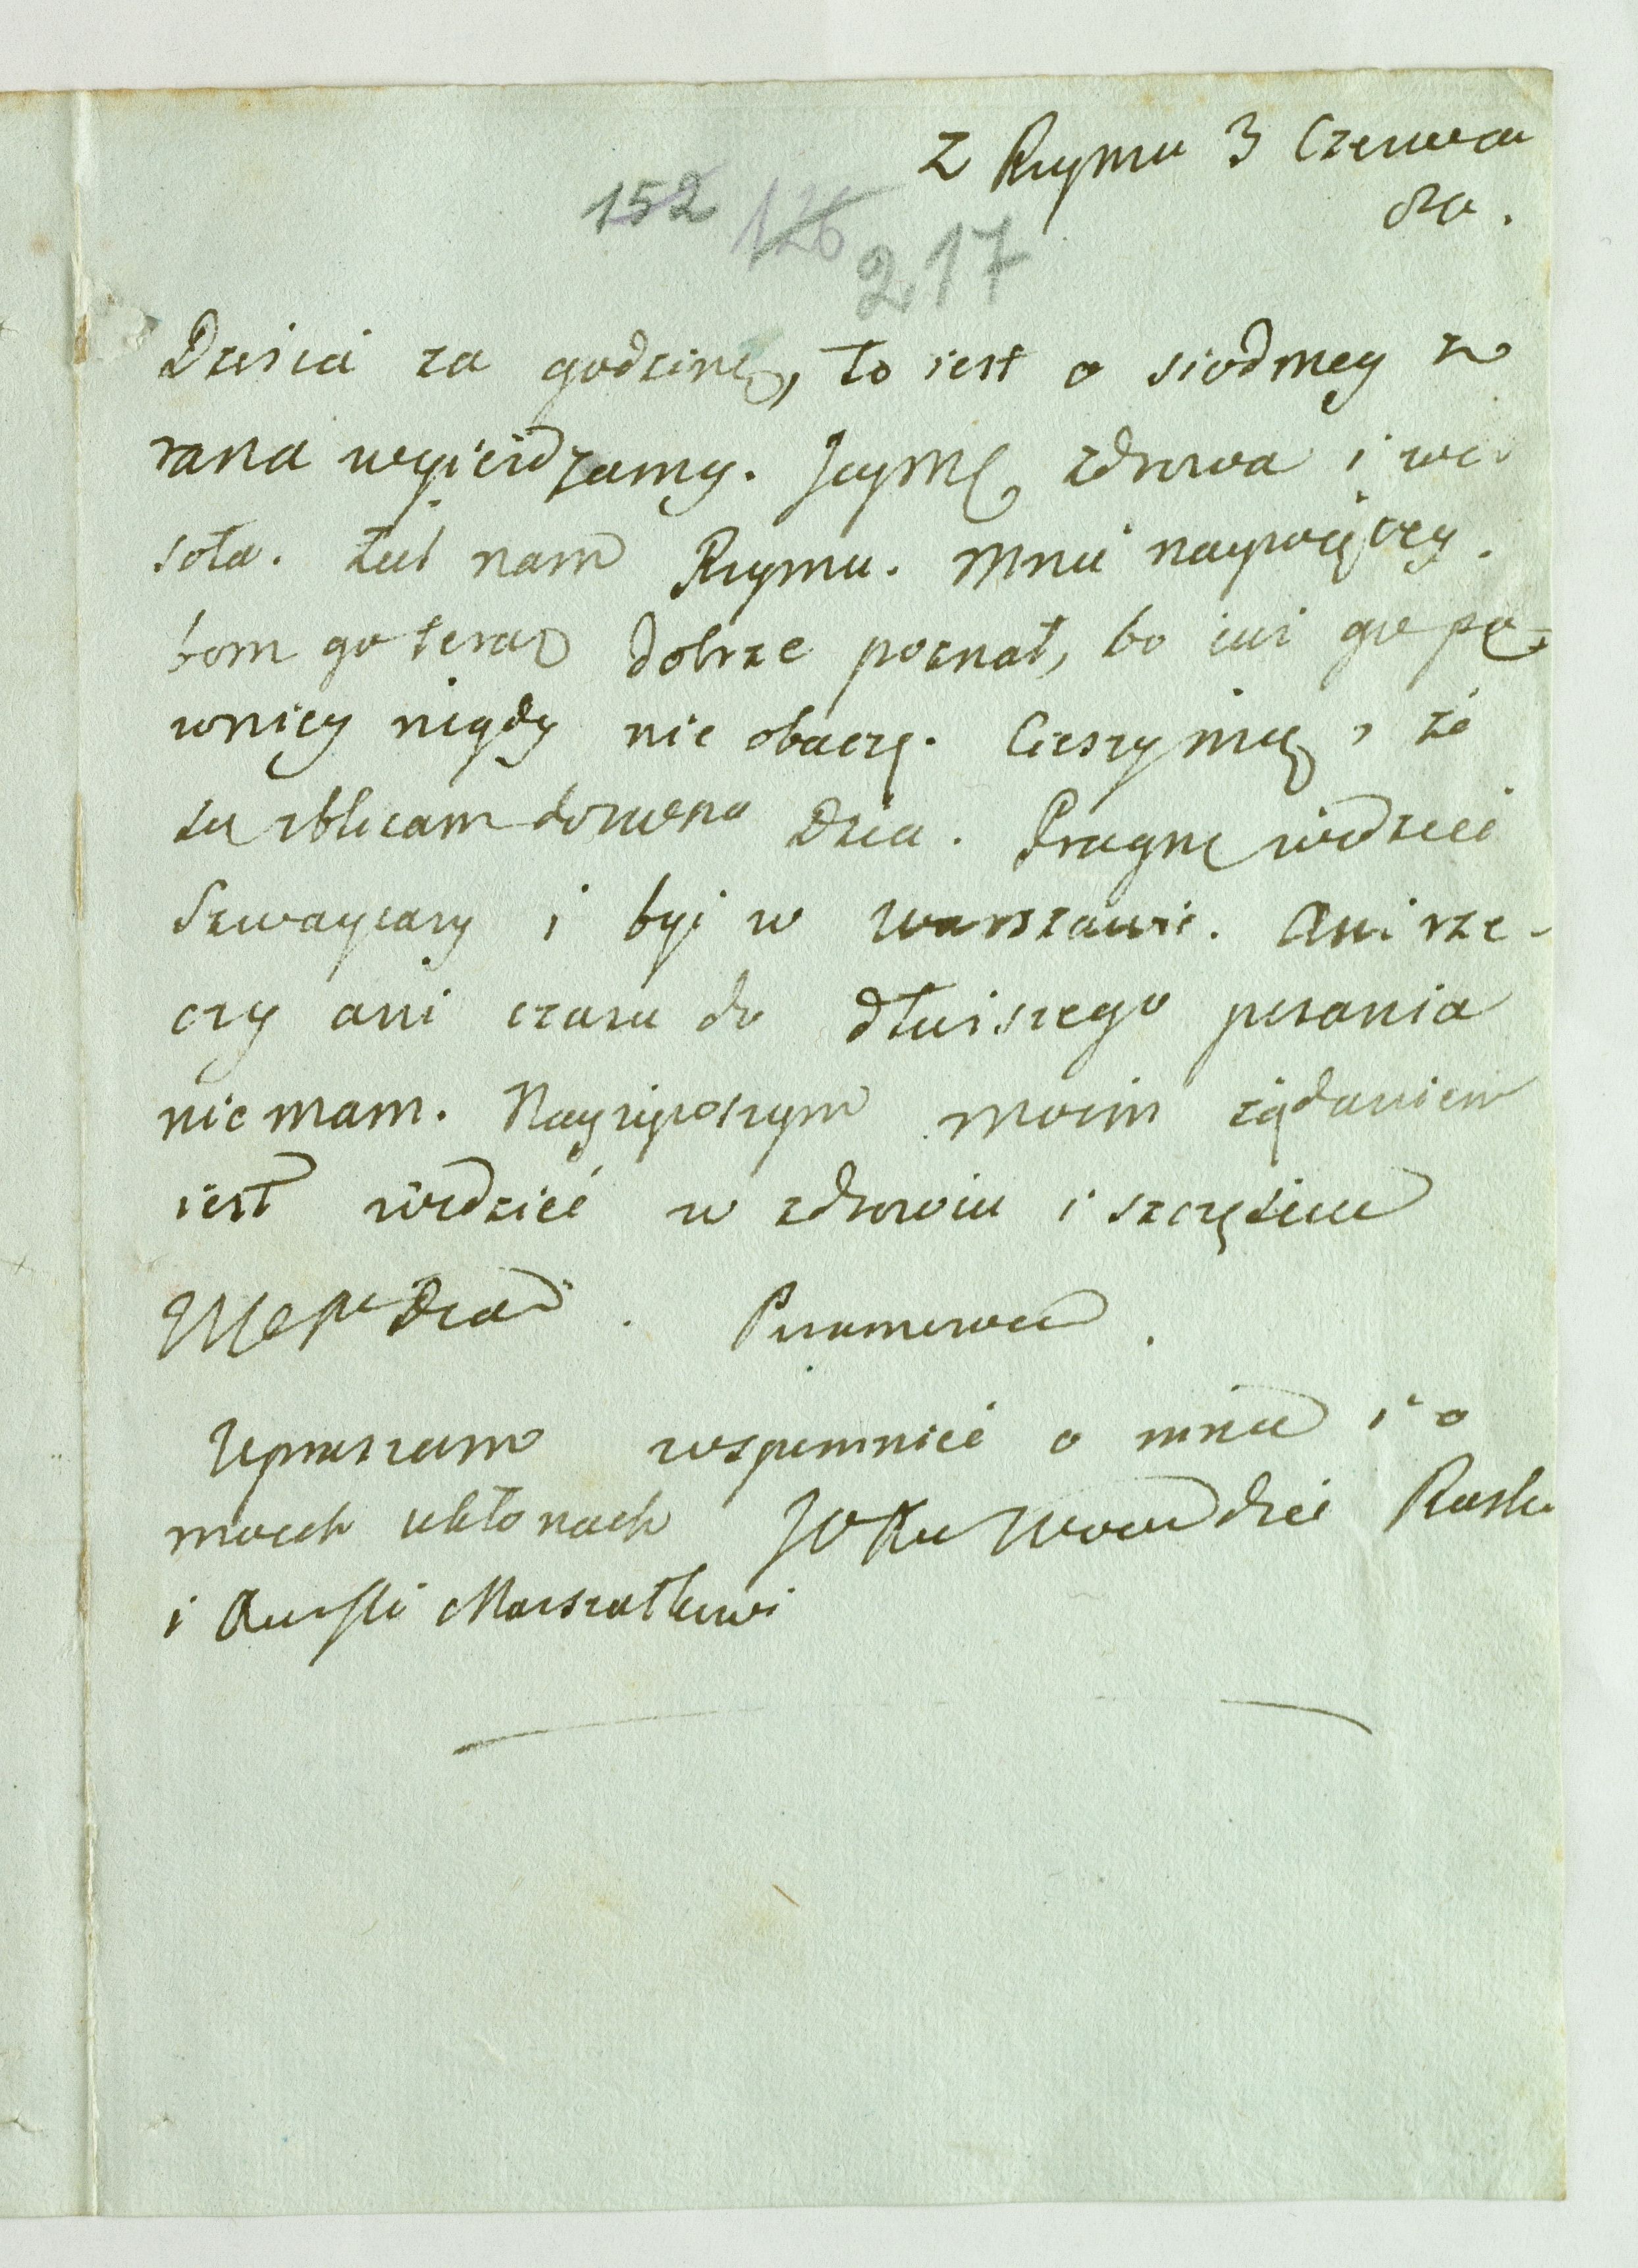 z Rzymu 3 Czerwca
820.
152 126 217
Dzisia za godzinę, to iest o siodmey z
rana wyieżdżamy. Jeymć zdrowa i we
soła. Żal nam Rzymu. Mnie naywięcey.
bom go teraz dobrze poznał, bo iuż go pe-
wniey nigdy nie obaczę. Cieszy mię, że
się zbliżam do WPana Dzia. Pragnę widzieć
Szwaycary i być w Warszawie. Ani rze-
czy ani czasu do dłuższego pisania
nie mam. Nayżywszym moim żądaniem
iest widzieć w zdrowiu i szczęściu
Dzia.
Upraszam wspomnieć o mnie i o
moich ukłonach
i Marszałkowi